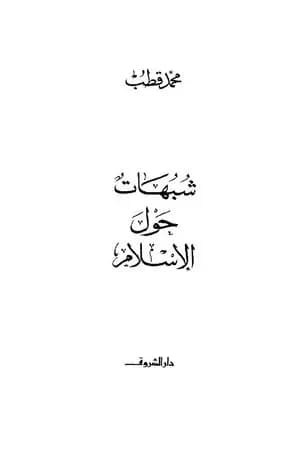 محمد قطب
شُبُهَات
حَوْلَ
الإسْلام
دار الشروق